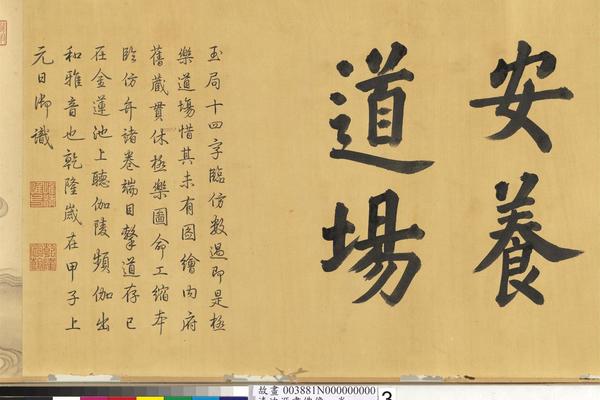 安養
道場
玉局十四字臨仿數過即是極
樂道場惜其未有圖繪內府
舊藏貫休極樂圖命工縮本
臨仿弁諸卷端目擊道存已
在金蓮池上聽伽陵頻伽出
和雅音也乾隆歲在甲子上
元日御識
故畫 003881N000000000
3